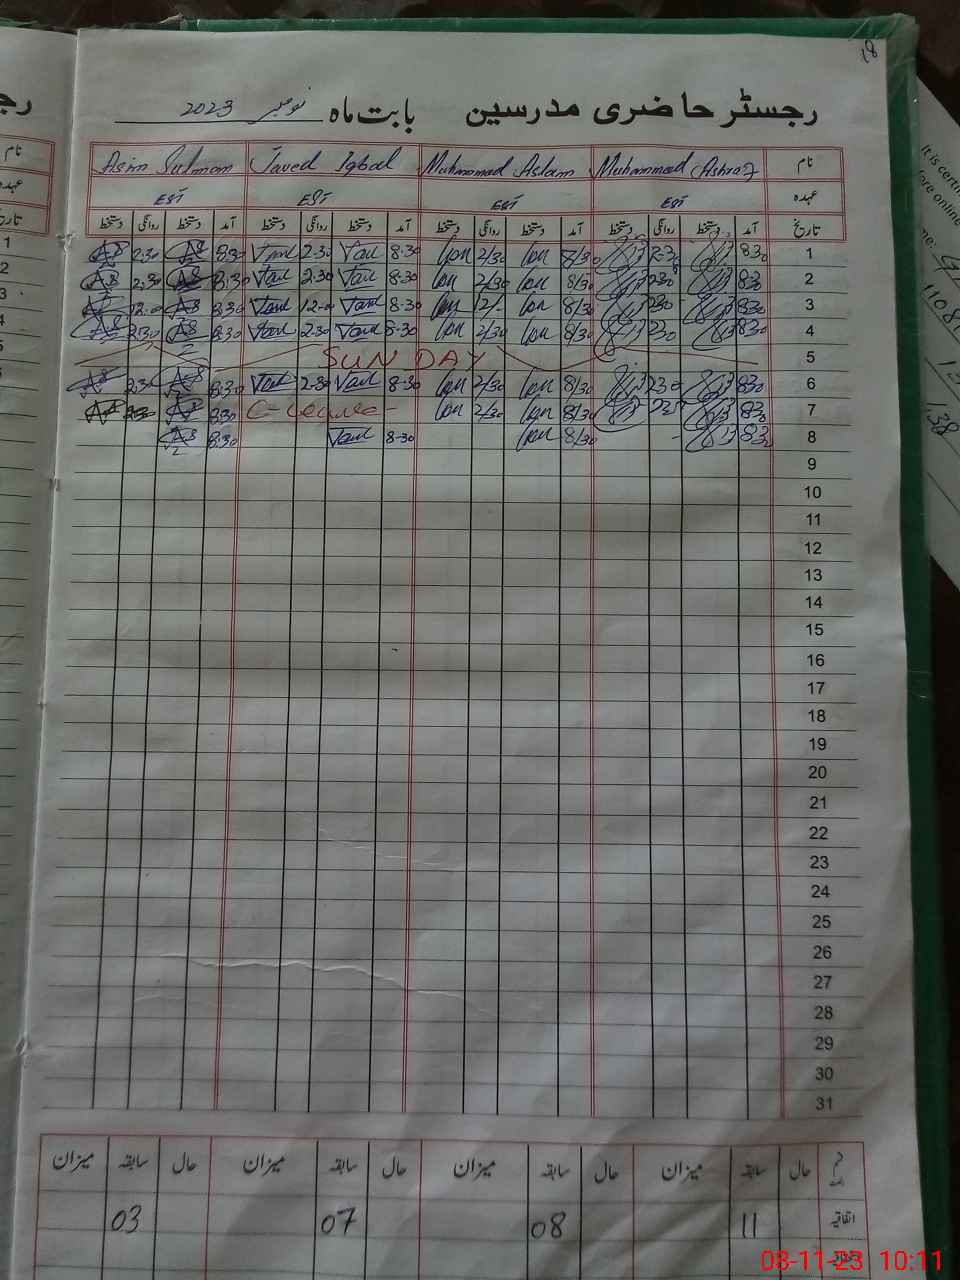 18
رجسٹر حاضری مدرسین بابت ماہ نومبر 2023
نام Muhammad Ashraf Muhammad Aslam Javed Iqbal Asim Sulman
عہدہ EST EST EST EST
تاریخ آمد دستخط روانگی دستخط آمد دستخط روانگی دستخط آمد دستخط روانگی دستخط آمد دستخط روانگی دستخط
1 830 230 7/30 2/30 8-30 2-30 8:30 2:30
2 830 230 8/30 2/30 8-30 2:30 8:30 2:30
3 830 230 8/30 12/- 8-30 12-00 8:30 12:00
4 830 230 8/30 2/30 8-30 2:30 8:30 2:30
5 SUNDAY
6 830 230 8/30 2/30 8-30 2:30 8:30 2:30
7 830 230 8/30 2/30 C-Leave- 8:30 2:30
8 830 8/30 8-30 8:30
9
10
11
12
13
14
15
16
17
18
19
20
21
22
23
24
25
26
27
28
29
30
31
حال سابقہ میزان حال سابقہ میزان حال سابقہ میزان حال سابقہ میزان
اتفاقیہ 11 08 07 03
رج
نام
عہدہ
تاریخ
1
2
3
4
5
It is certi
fore online
08-11-23 10:11